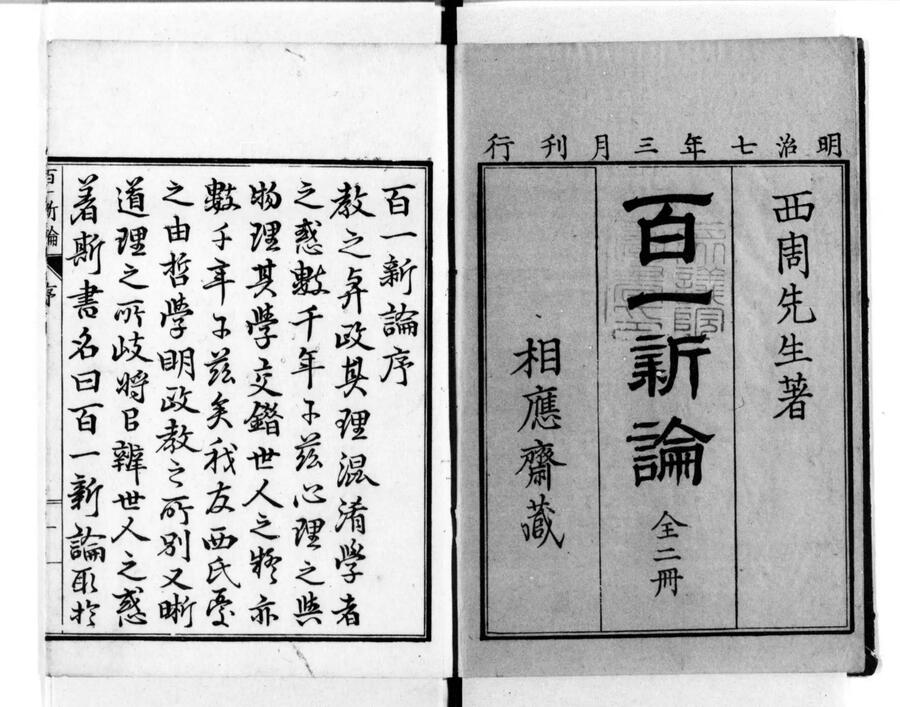 明治七年三月刊行
西周先生著
百一新論 全二冊
相應齋藏
百一新論序
教之與政其理混淆學者
之惑數千年于茲心理之與
物理其學交錯世人之疑亦
數千年于茲矣我友西氏憂
之由哲學明政教之所別又晰
道理之所歧將以辨世人之惑
著斯書名曰百一新論取於
百一新論 序